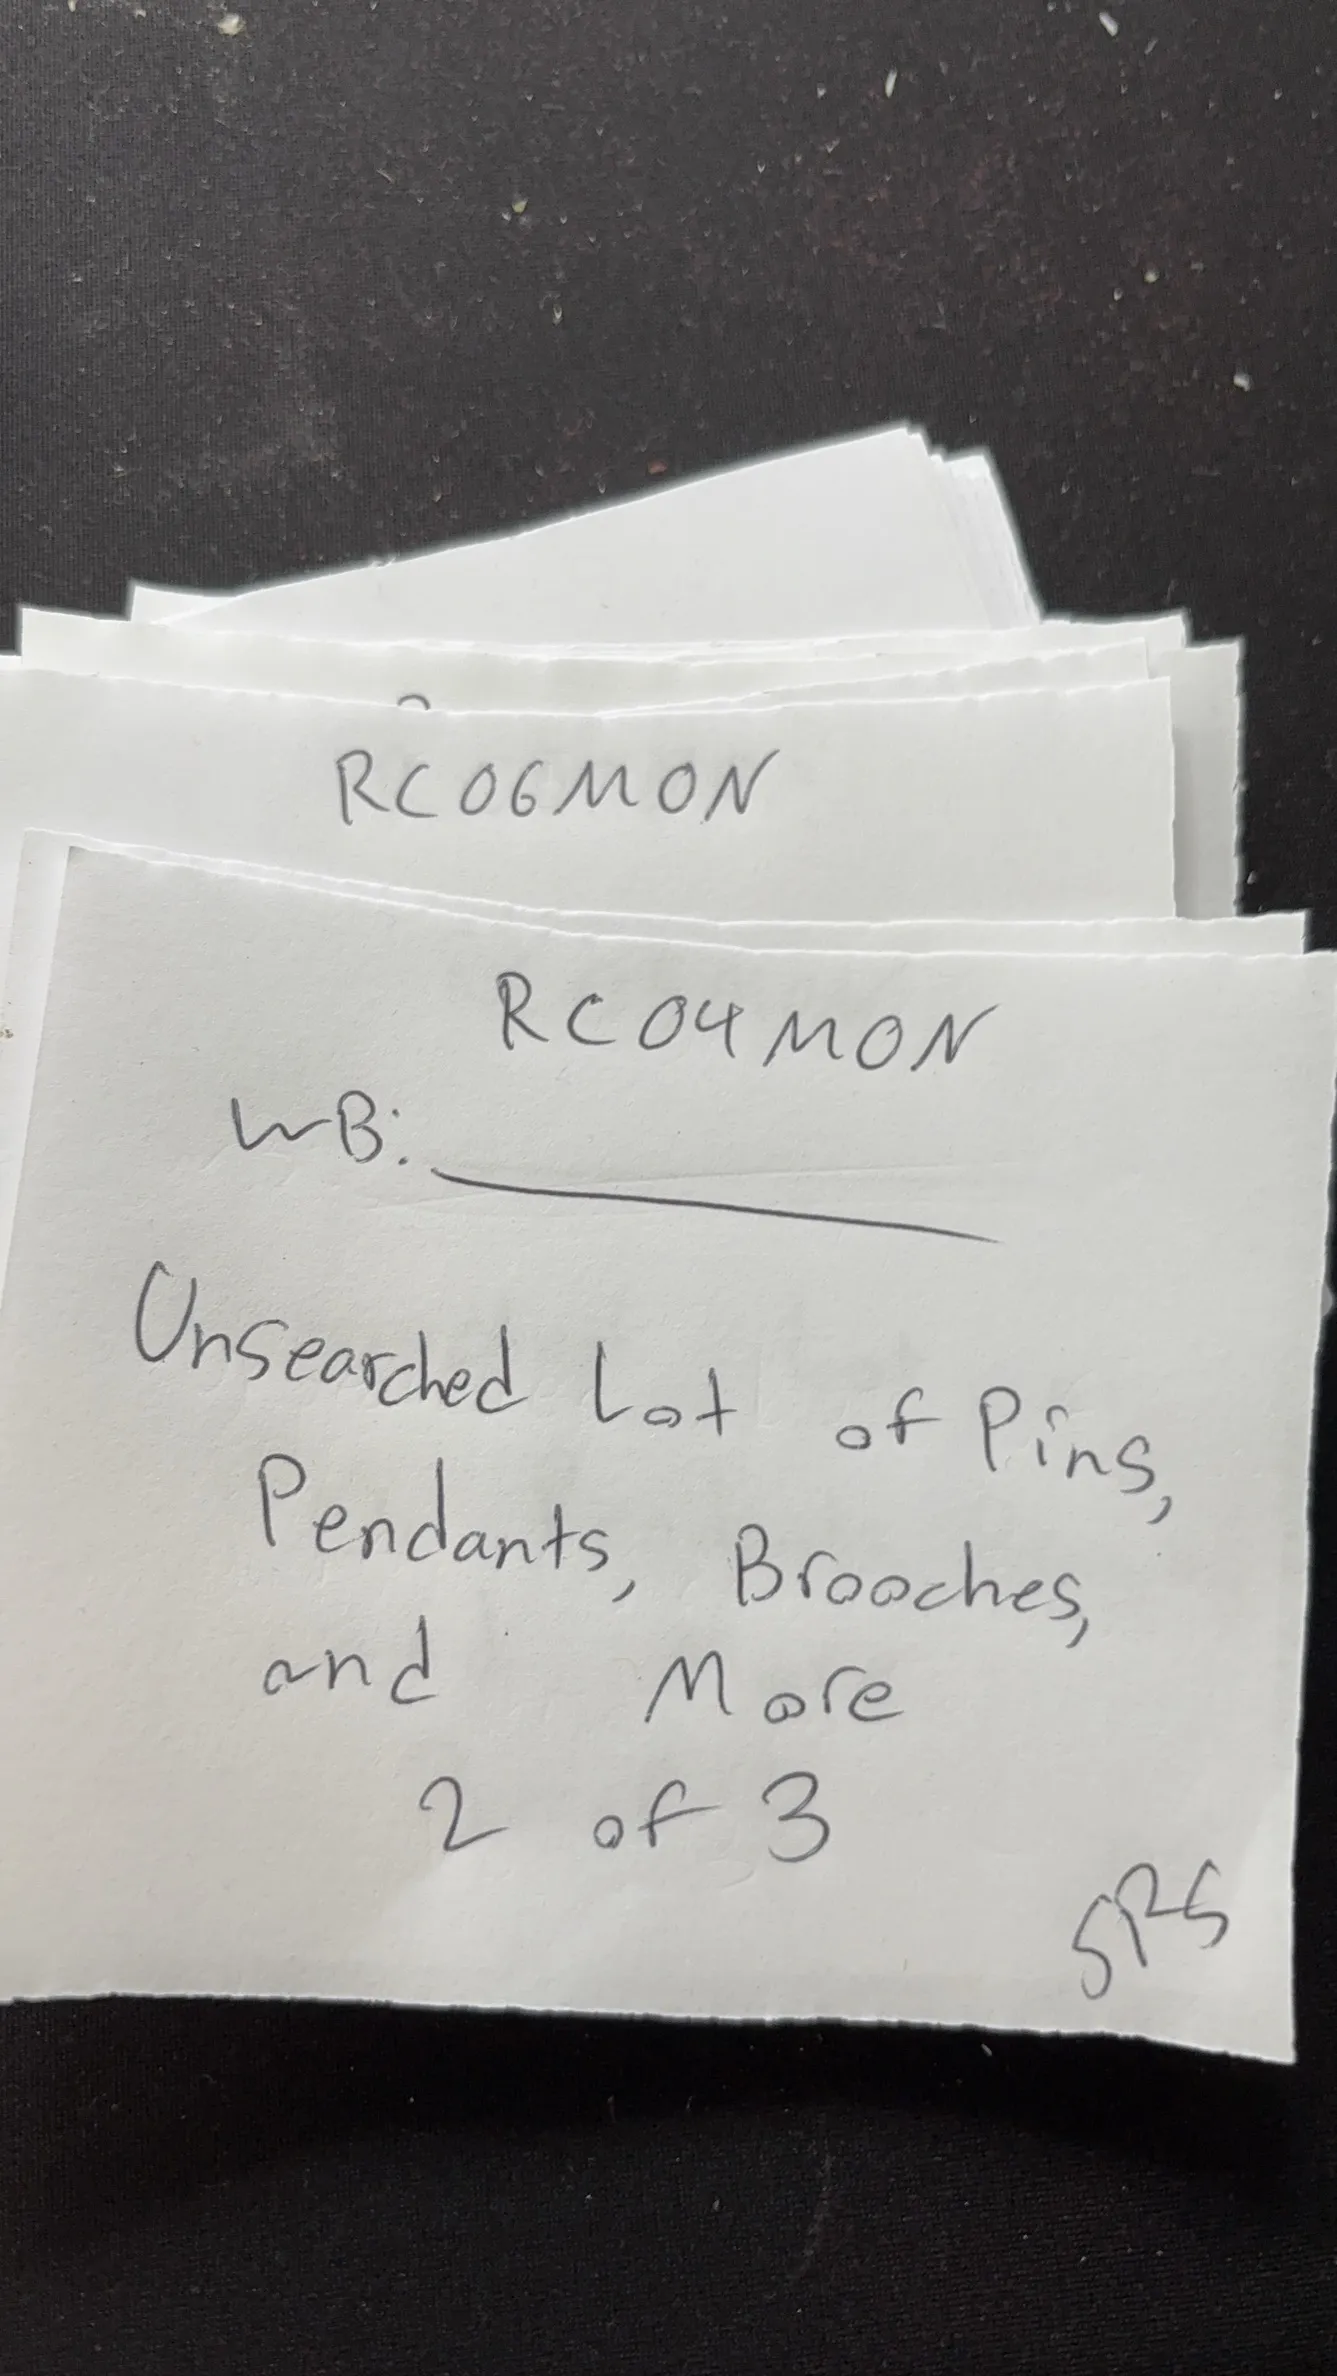 RC06MON
RC04MON
WB:
Unsearched Lot of Pins,
Pendants, Brooches,
and More
2 of 3
SRS